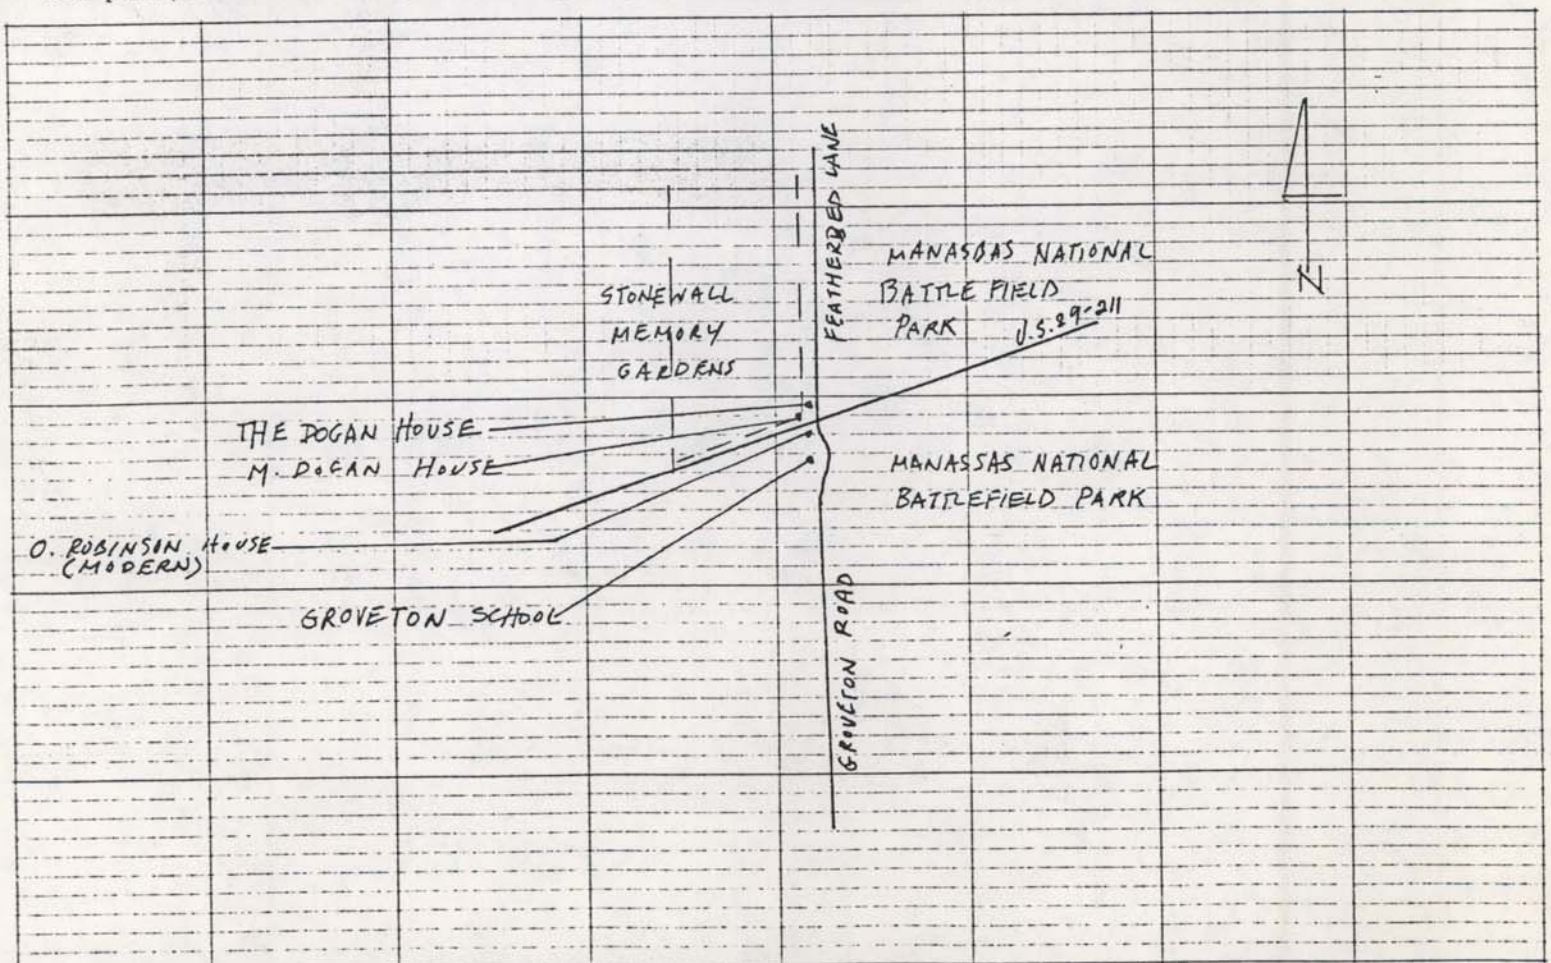 FEATHERBED LANE
MANASSAS NATIONAL
BATTLE FIELD
PARK
U.S. 29-211
N
STONEWALL
MEMORY
GARDENS
THE DOGAN HOUSE
M. DOGAN HOUSE
MANASSAS NATIONAL
BATTLEFIELD PARK
O. ROBINSON HOUSE
(MODERN)
GROVETON SCHOOL
GROVETON ROAD